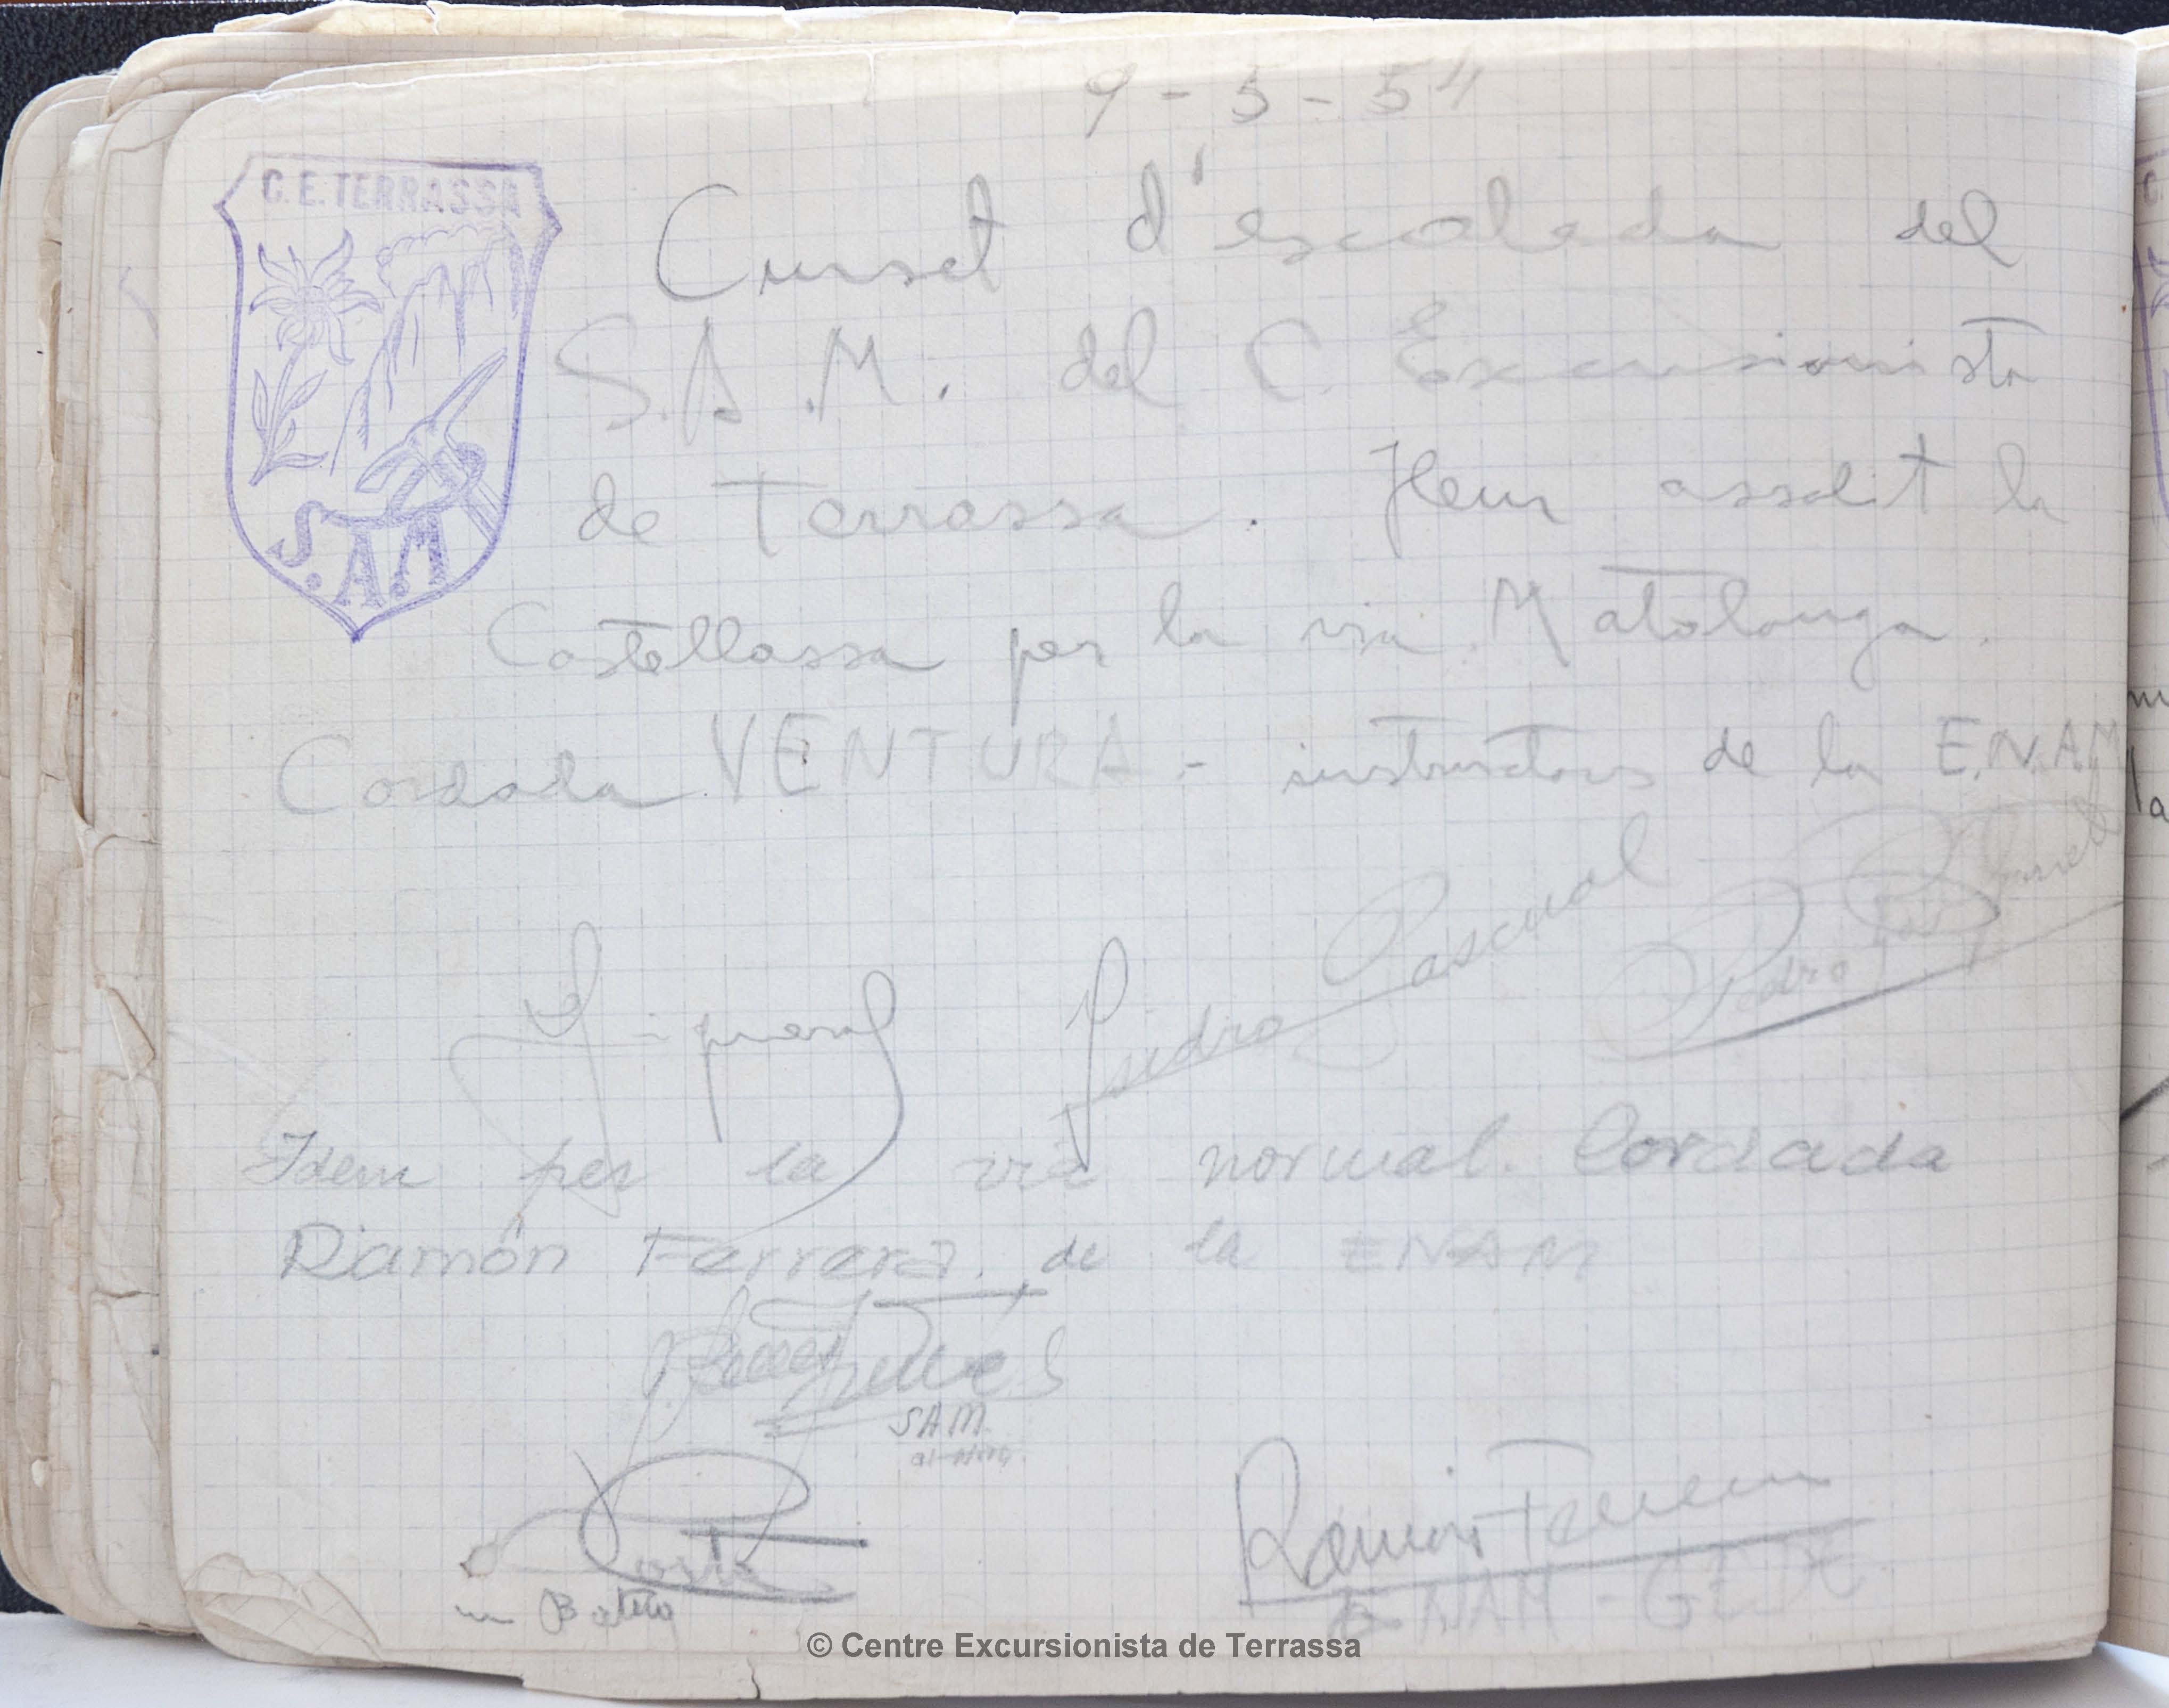 9-5-54
C.E. TERRASSA
S.A.M
Curset d'escalada del
S.A.M. del C. Excursionista
de Terrassa. Hem assolit la
Castellassa per la via Matalonga.
Cordada VENTURA - instructors de la E.N.A.M
Isidro Pascual
Pedro
Idem per la via normal. Cordada
Ramón Ferrera. de la ENAM
SAM
Costa
un
Ramón Ferrera
ENAM - GEDE
© Centre Excursionista de Terrassa